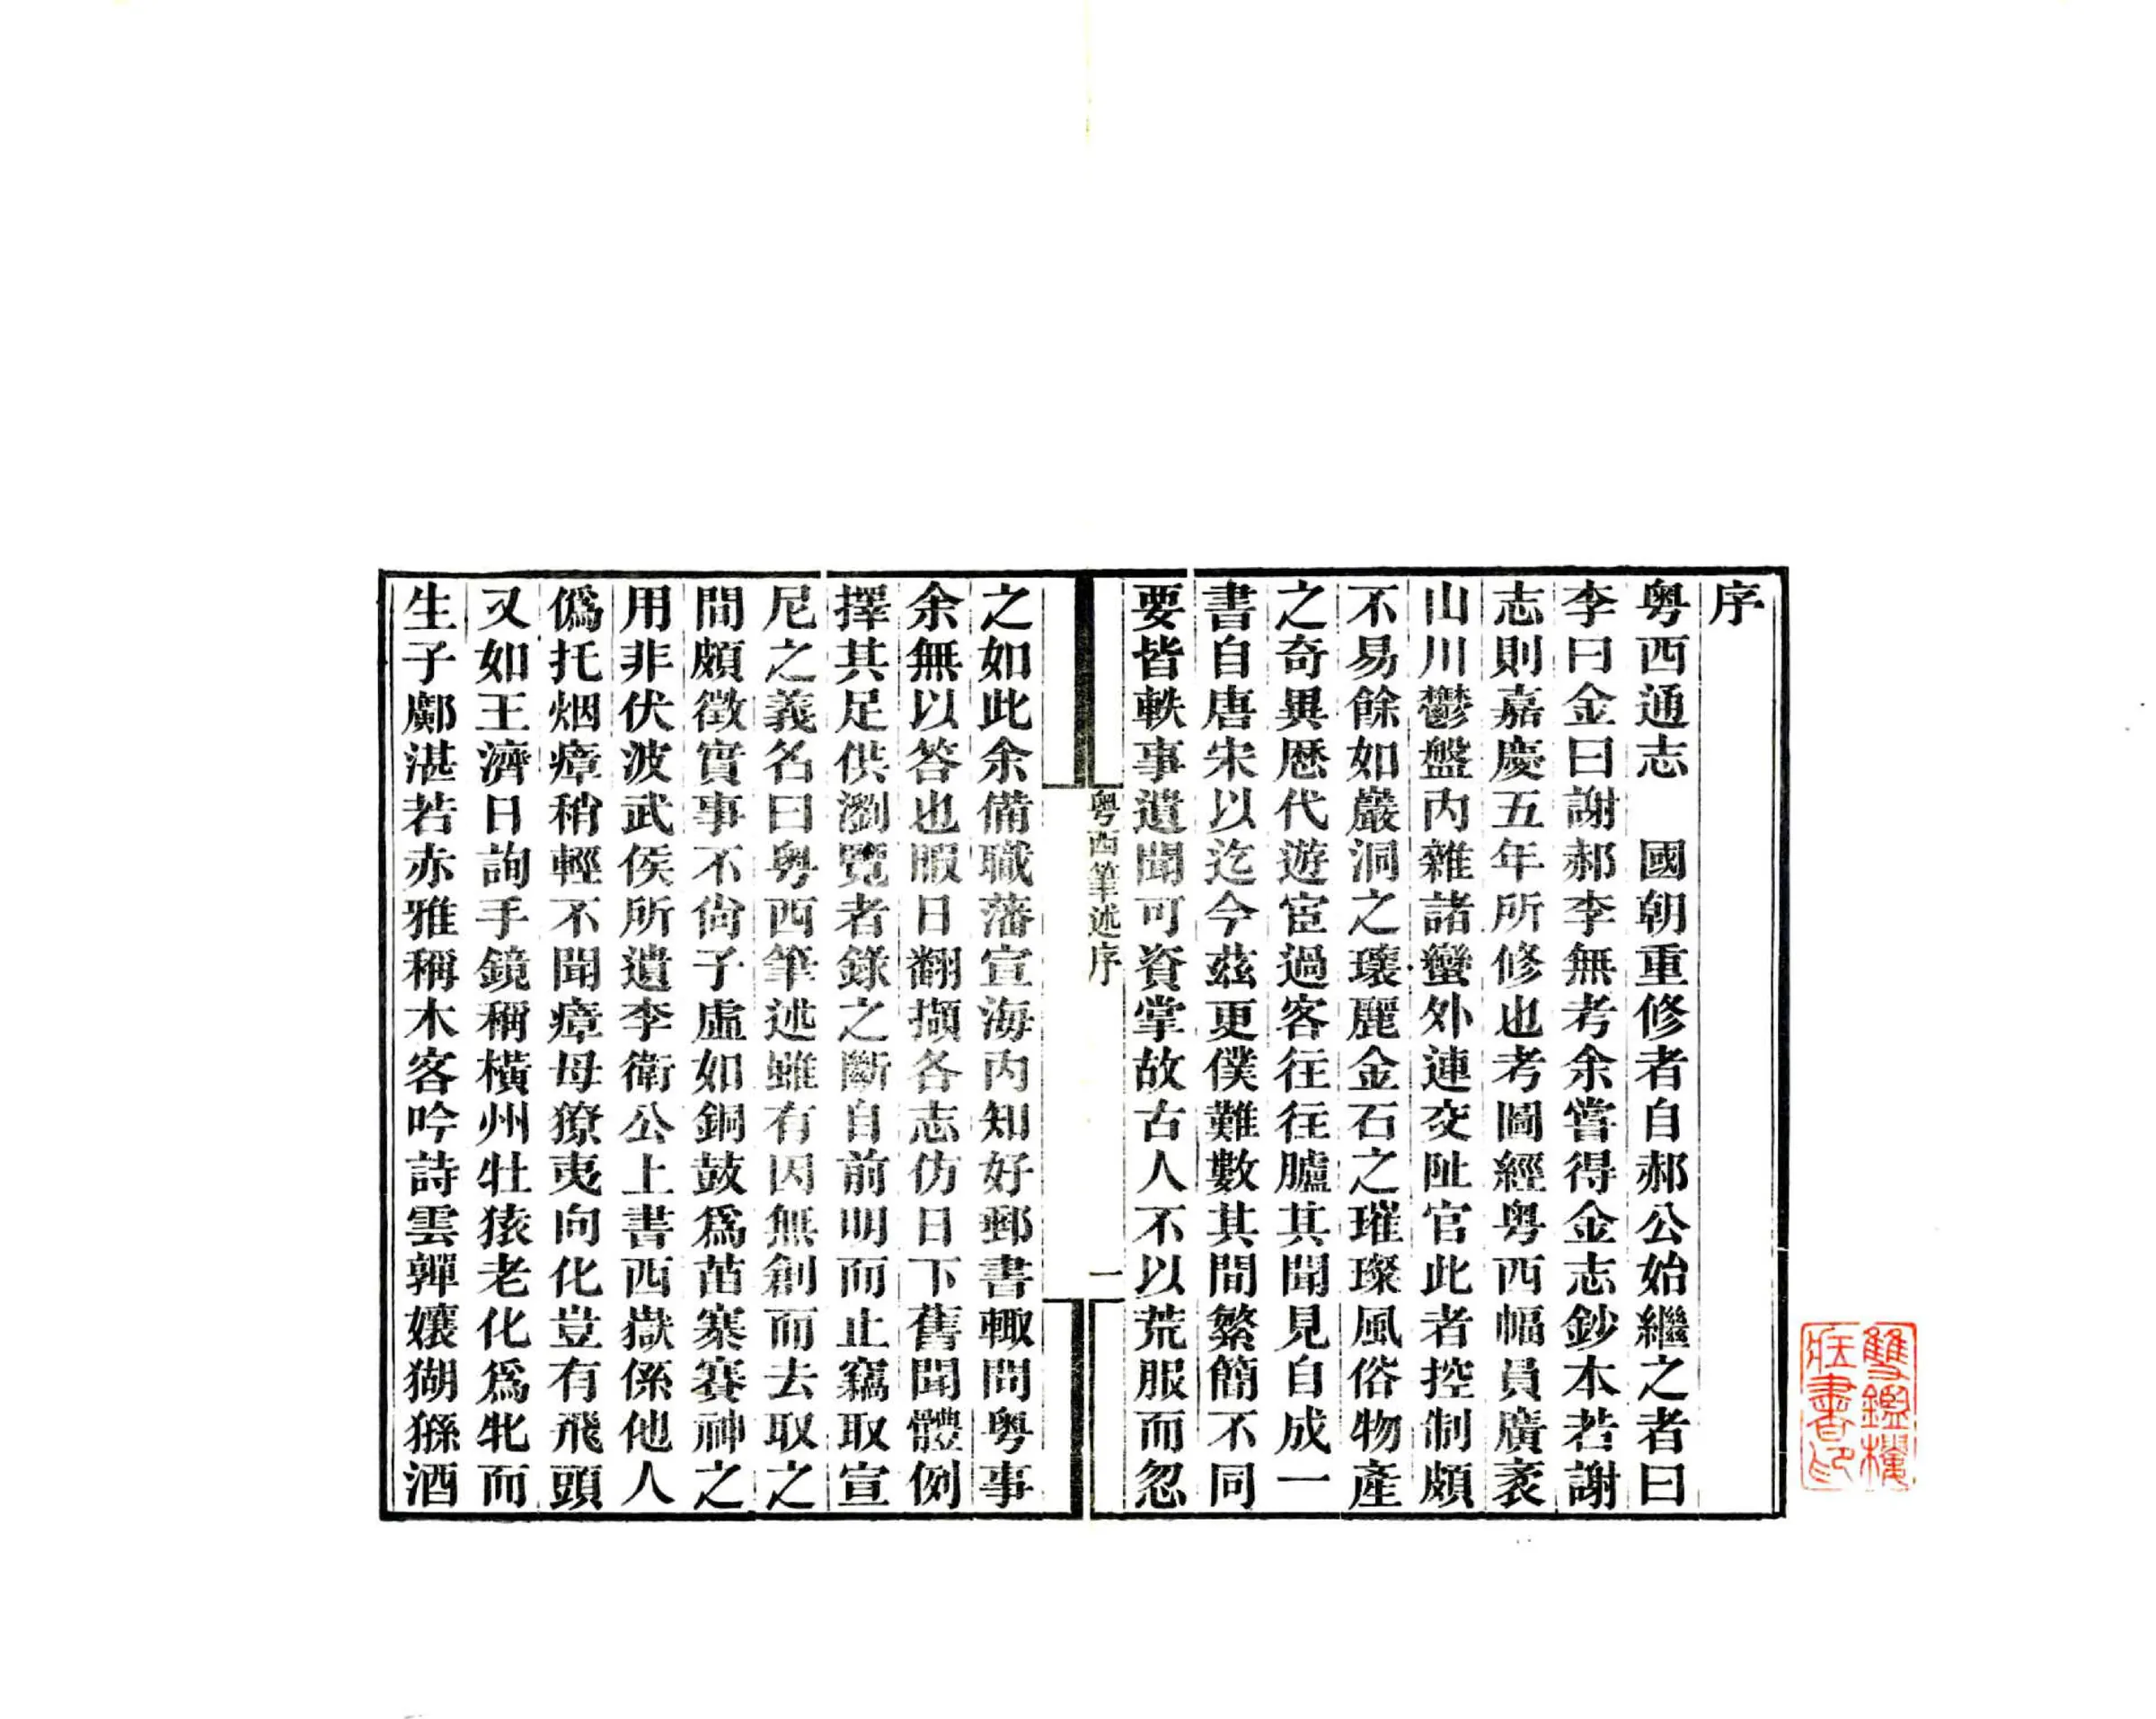 序
粤西通志　國朝重修者自郝公始繼之者曰
李曰金曰謝郝李無考余嘗得金志鈔本若謝
志則嘉慶五年所修也考圖經粤西幅員廣袤
山川鬱盤内雜諸蠻外連交阯官此者控制頗
不易餘如巖洞之瓌麗金石之璀璨風俗物產
之奇異歴代遊宦過客往往臚其聞見自成一
書自唐宋以迄今茲更僕難數其間繁簡不同
要皆軼事遺聞可資掌故古人不以荒服而忽
粤西筆述序
一
之如此余備職藩宣海内知好郵書輙問粤事
余無以答也暇日翻擷各志仿日下舊聞體例
擇其足供瀏覽者錄之斷自前明而止竊取宣
尼之義名曰粤西筆述雖有因無創而去取之
間頗徵實事不尙子虛如銅鼓爲苗寨賽神之
用非伏波武侯所遺李衛公上書西嶽係他人
僞托烟瘴稍輕不聞瘴母獠夷向化豈有飛頭
又如王濟日詢手鏡稱橫州牡猿老化爲牝而
生子鄺湛若赤雅稱木客吟詩雲嚲孃猢猻酒
雙鑑樓
藏書印